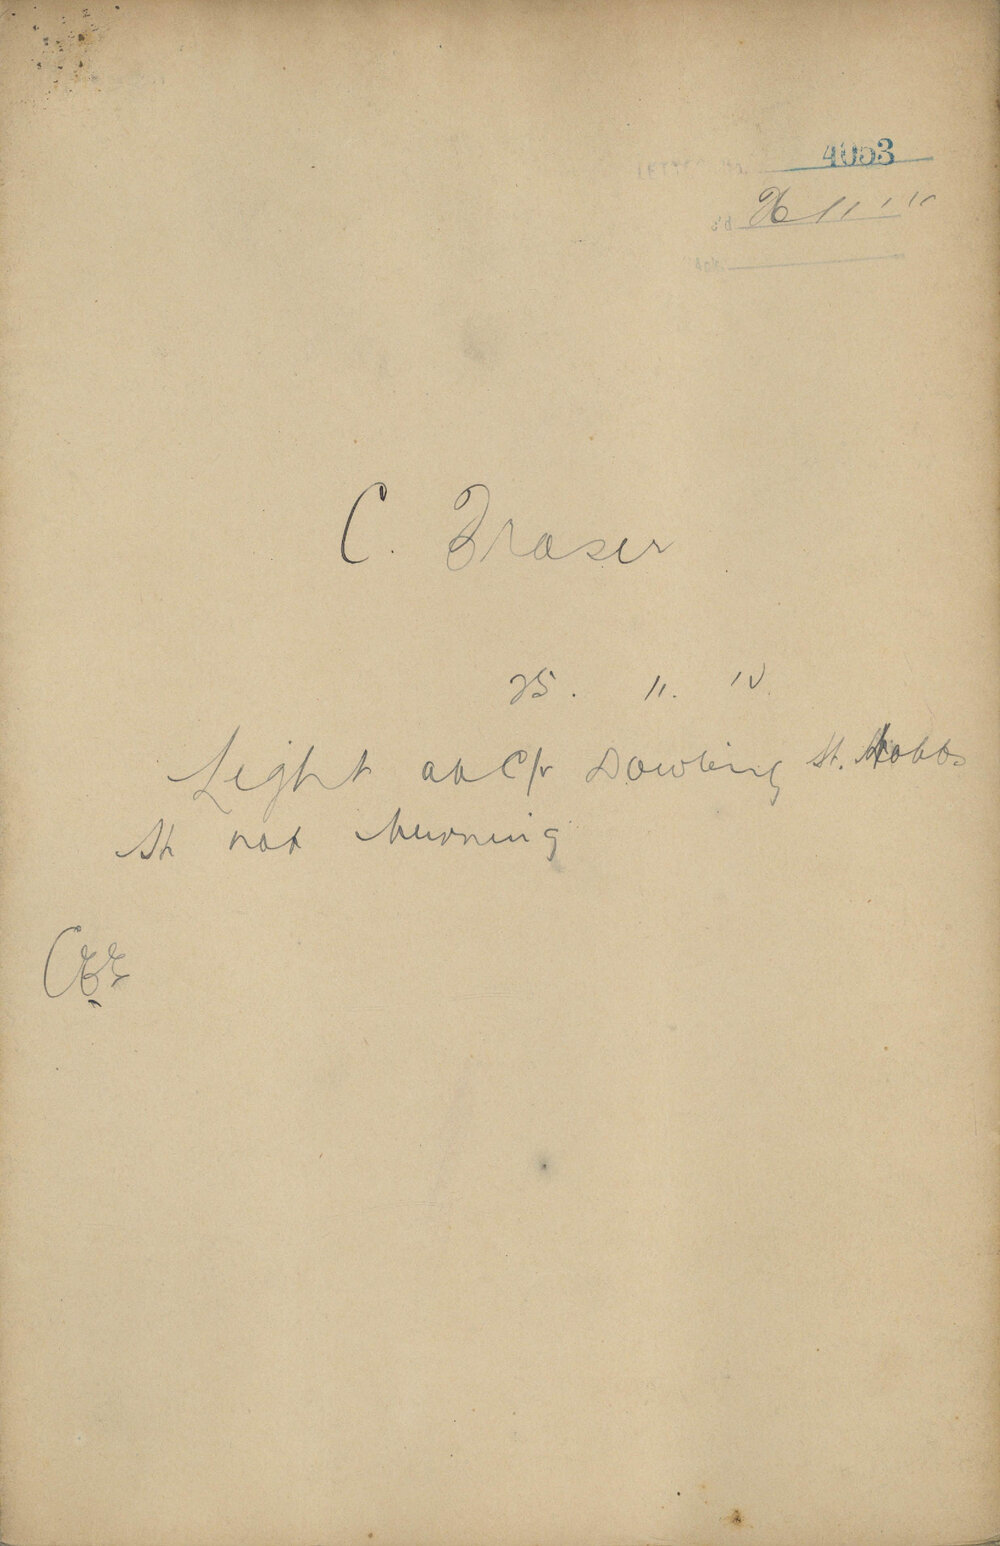 LETTER No. 4053
C. Fraser
25. 11. 10
Light at C/r Dowling St. Hobbs
St not burning